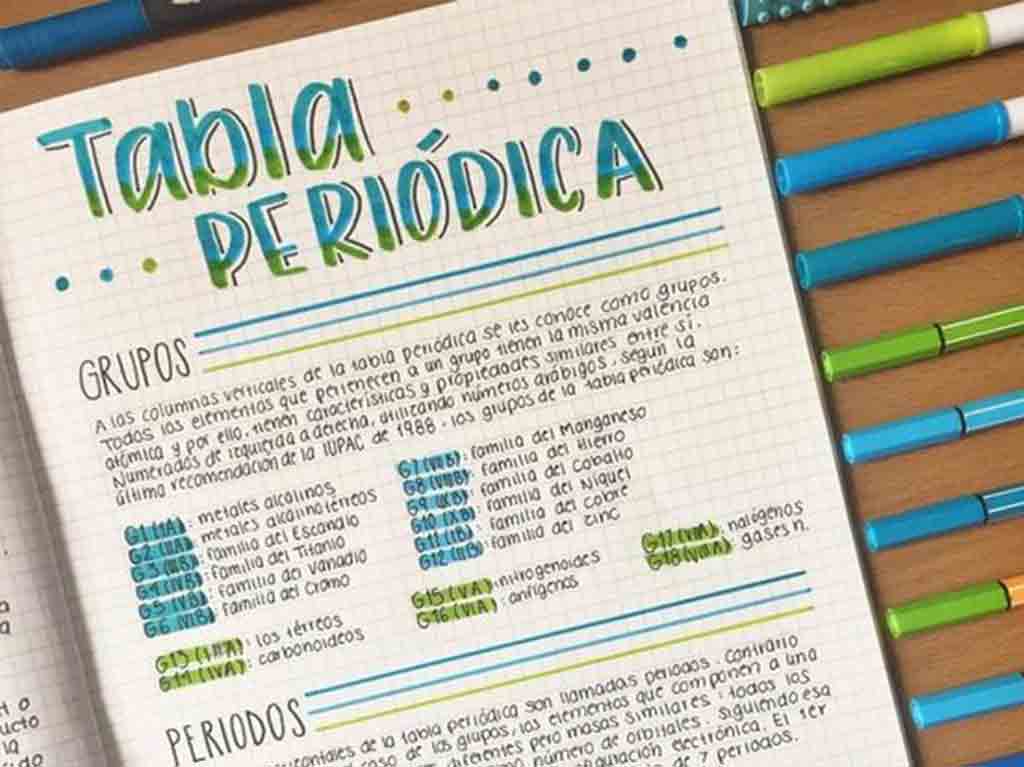 Tabla
PERIÓDICA
GRUPOS
A las columnas verticales de la tabla periódica se les conoce como grupos.
Todos los elementos que pertenecen a un grupo tienen la misma valencia
atómica y por ello, tienen características y propiedades similares entre sí.
Numerados de izquierda a derecha, utilizando números arábigos, según la
última recomendación de la IUPAC de 1988, los grupos de la tabla periódica son:
G1 (IA): metales alcalinos
G2 (IIA): metales alcalinotérreos
G3 (IIIB): familia del Escandio
G4 (IVB): familia del Titanio
G5 (VB): familia del Vanadio
G6 (VIB): familia del Cromo
G7 (VIIB): familia del Manganeso
G8 (VIIIB): familia del Hierro
G9 (IXB): familia del Cobalto
G10 (XB): familia del Níquel
G11 (IB): familia del Cobre
G12 (IIB): familia del Zinc
G13 (IIIA): los térreos
G14 (IVA): carbonoideos
G15 (VA): nitrogenoides
G16 (VIA): anfígenos
G17 (VIIA): halógenos
G18 (VIIIA): gases n.
PERIODOS
de la tabla periódica son llamadas periodos. Contrario
caso de los grupos, los elementos que componen a una
diferentes pero masas similares: todos los
mismo número de orbitales. Siguiendo esa
configuración electrónica. El 1er
de 7 periodos.